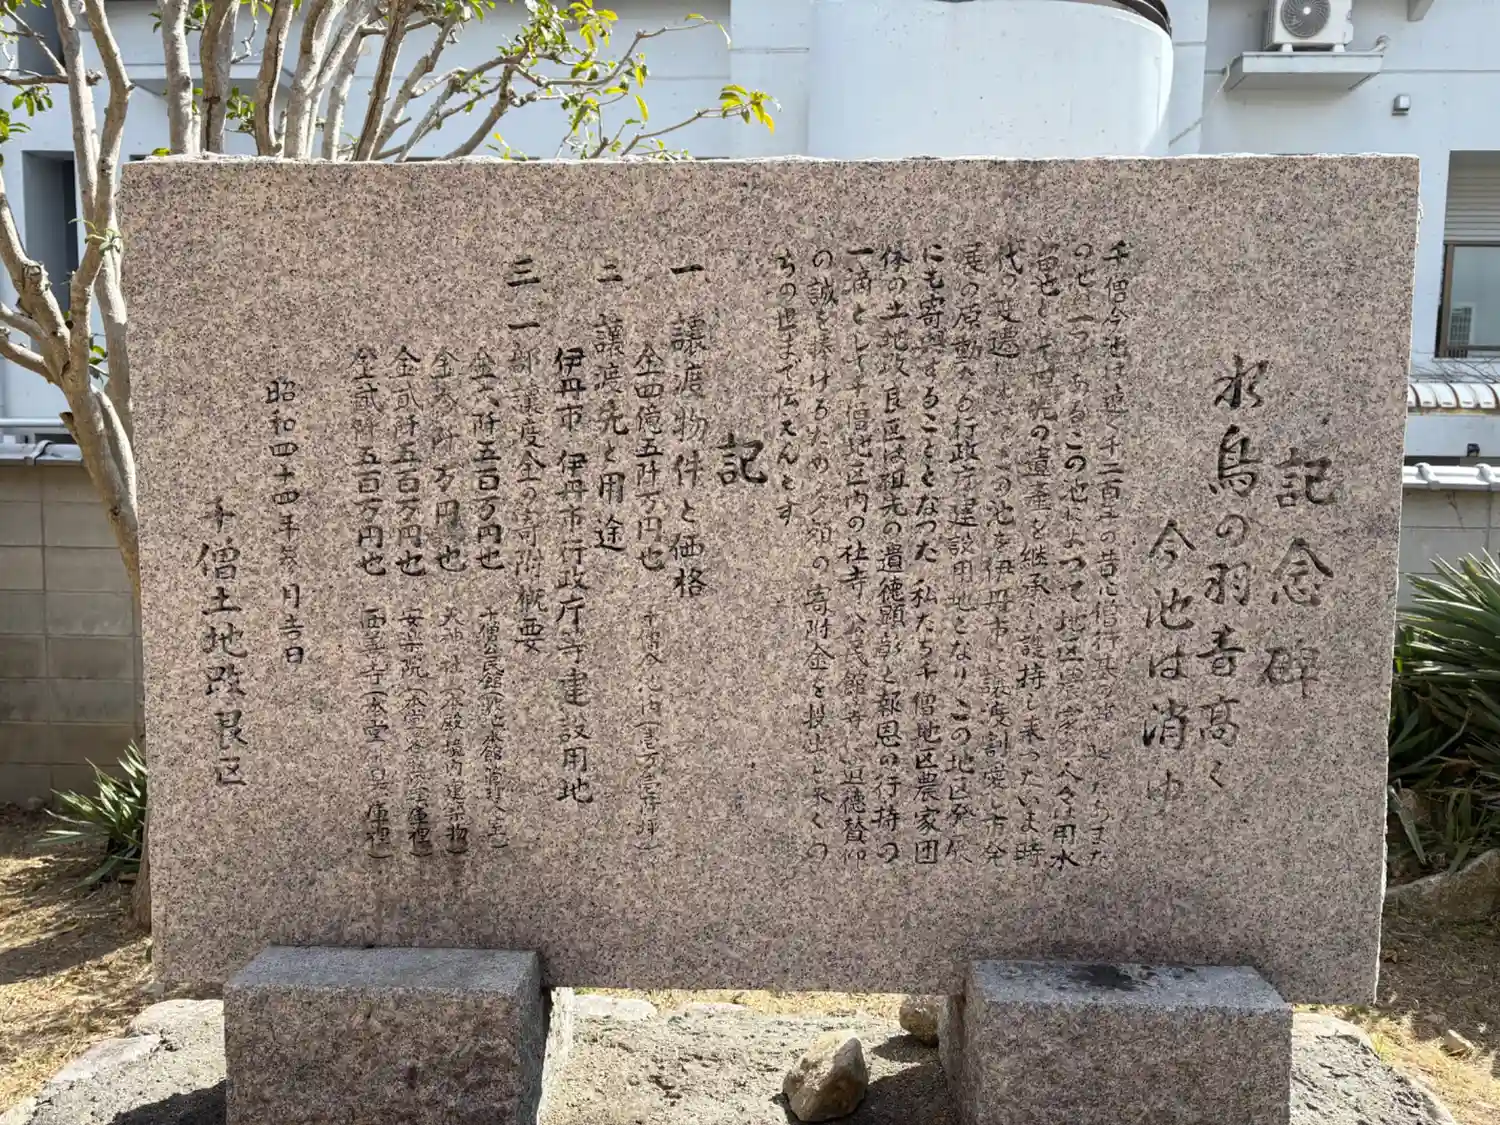 記念碑
水鳥の羽音高く
今池は消ゆ
千僧今池は遠く千二百年の昔に僧行基が
の一つである この池によって地区農家の人々は用水
として祖先の遺産を継承し護持し来ったいま時
代の変遷により この池を伊丹市に譲渡割愛し市発
展の原動力たる行政庁建設用地となり この地区発展
にも寄与することとなった 私たち千僧地区農家団
体の土地改良区は祖先の遺徳顕彰と報恩の行持の
一滴として千僧地区内の社寺 公民館等に 道徳賛仰
の誠を捧げるため多額の寄附金を投出し永くの
ちの世まで伝えんとす
記
一 譲渡物件と価格
金四億五阡万円也 千僧今池内(壱万
二 譲渡先と用途
伊丹市 伊丹市行政庁等建設用地
三 一部譲度金の寄附概要
金六阡五百万円也 千僧公民館
金参阡万円也 天神社(本殿境内建築物)
金弐阡五百万円也 安楽院(本堂 庫裡)
金弐阡五百万円也 西善寺(本堂 庫裡)
昭和四十四年参月吉日
千僧土地改良区